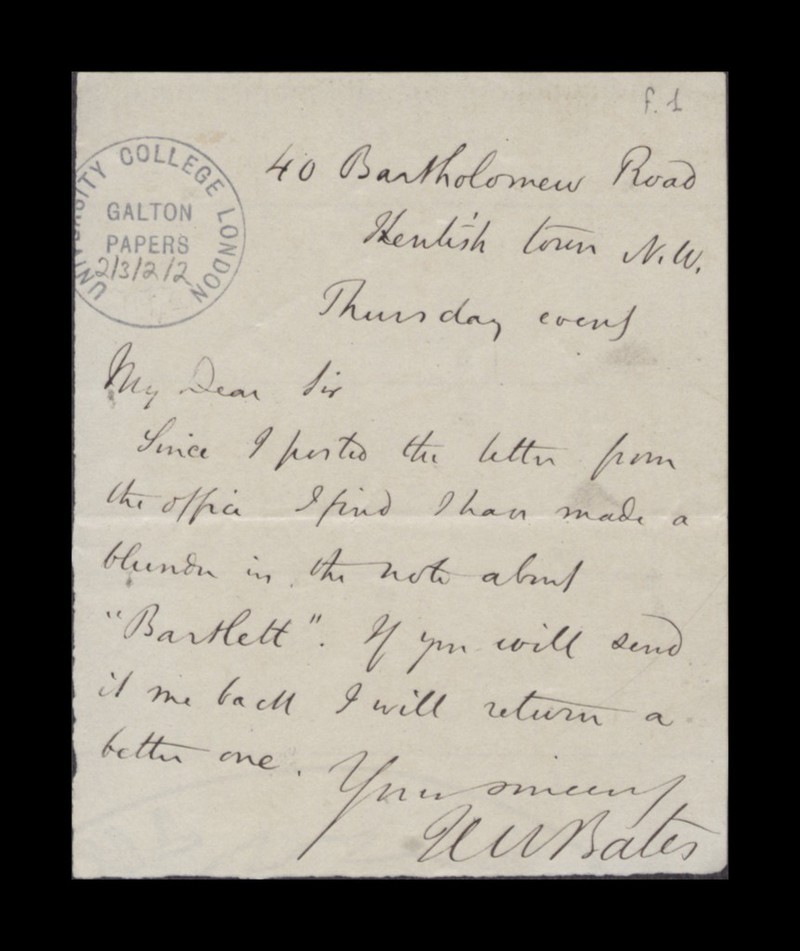 f. 1
UNIVERSITY COLLEGE LONDON
GALTON
PAPERS
2/3/2/2
40 Bartholomew Road
Kentish town N.W.
Thursday eveng
My Dear Sir
Since I posted the letter from
the office I find I have made a
blunder in the note about
"Bartlett". If you will send
it me back I will return a
better one.
Yours sincerely
H W Bates